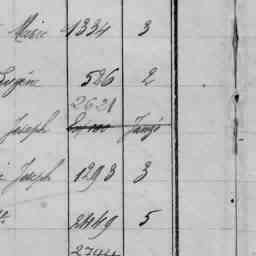 Marie 1334 3
Eugène 526 2
2621
Joseph
Joseph 1293 3
2449 5
2794